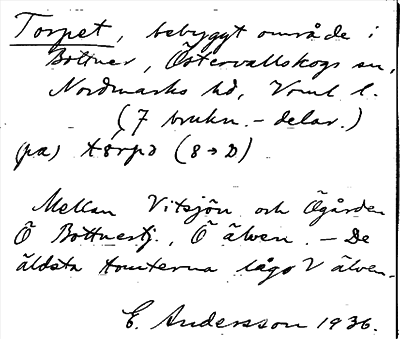 Torpet, bebyggt område i
Bottner, Östervallskogs sn,
Nordmarks hd, Vrml l.
(7 brukn.-delar.)
(på) tɵrpə
Mellan Vitsjön och Ögården
Ö Bottnestj., Ö älven. - De
äldsta tomterna lågo V älven.
E. Andersson 1936.